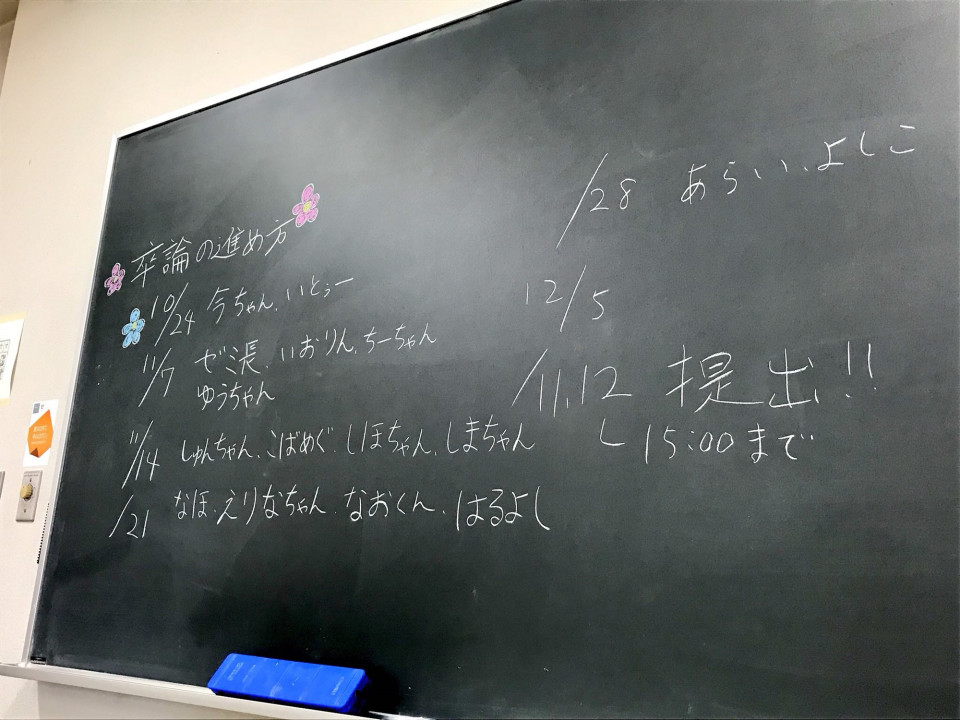 卒論の進め方
10/24 今ちゃん、いとぅー
11/7 ゼミ長、いおりん、ちーちゃん
ゆうちゃん
11/14 しゅんちゃん、こばめぐ、しほちゃん、しまちゃん
/21 なほ、えりなちゃん、なおくん、はるよし
/28 あらい、よしこ
12/5
/11,12 提出!!
15:00まで